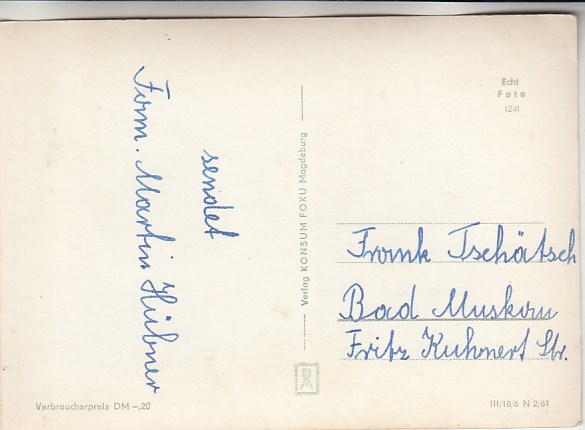 sendet
Fam. Martin Hübner
Verbraucherpreis DM –,20
Verlag KONSUM FOKU Magdeburg
Echt
Foto
1241
Frank Tschätsch
Bad Muskau
Fritz Kuhnert Str.
III/18/6 N 2/61